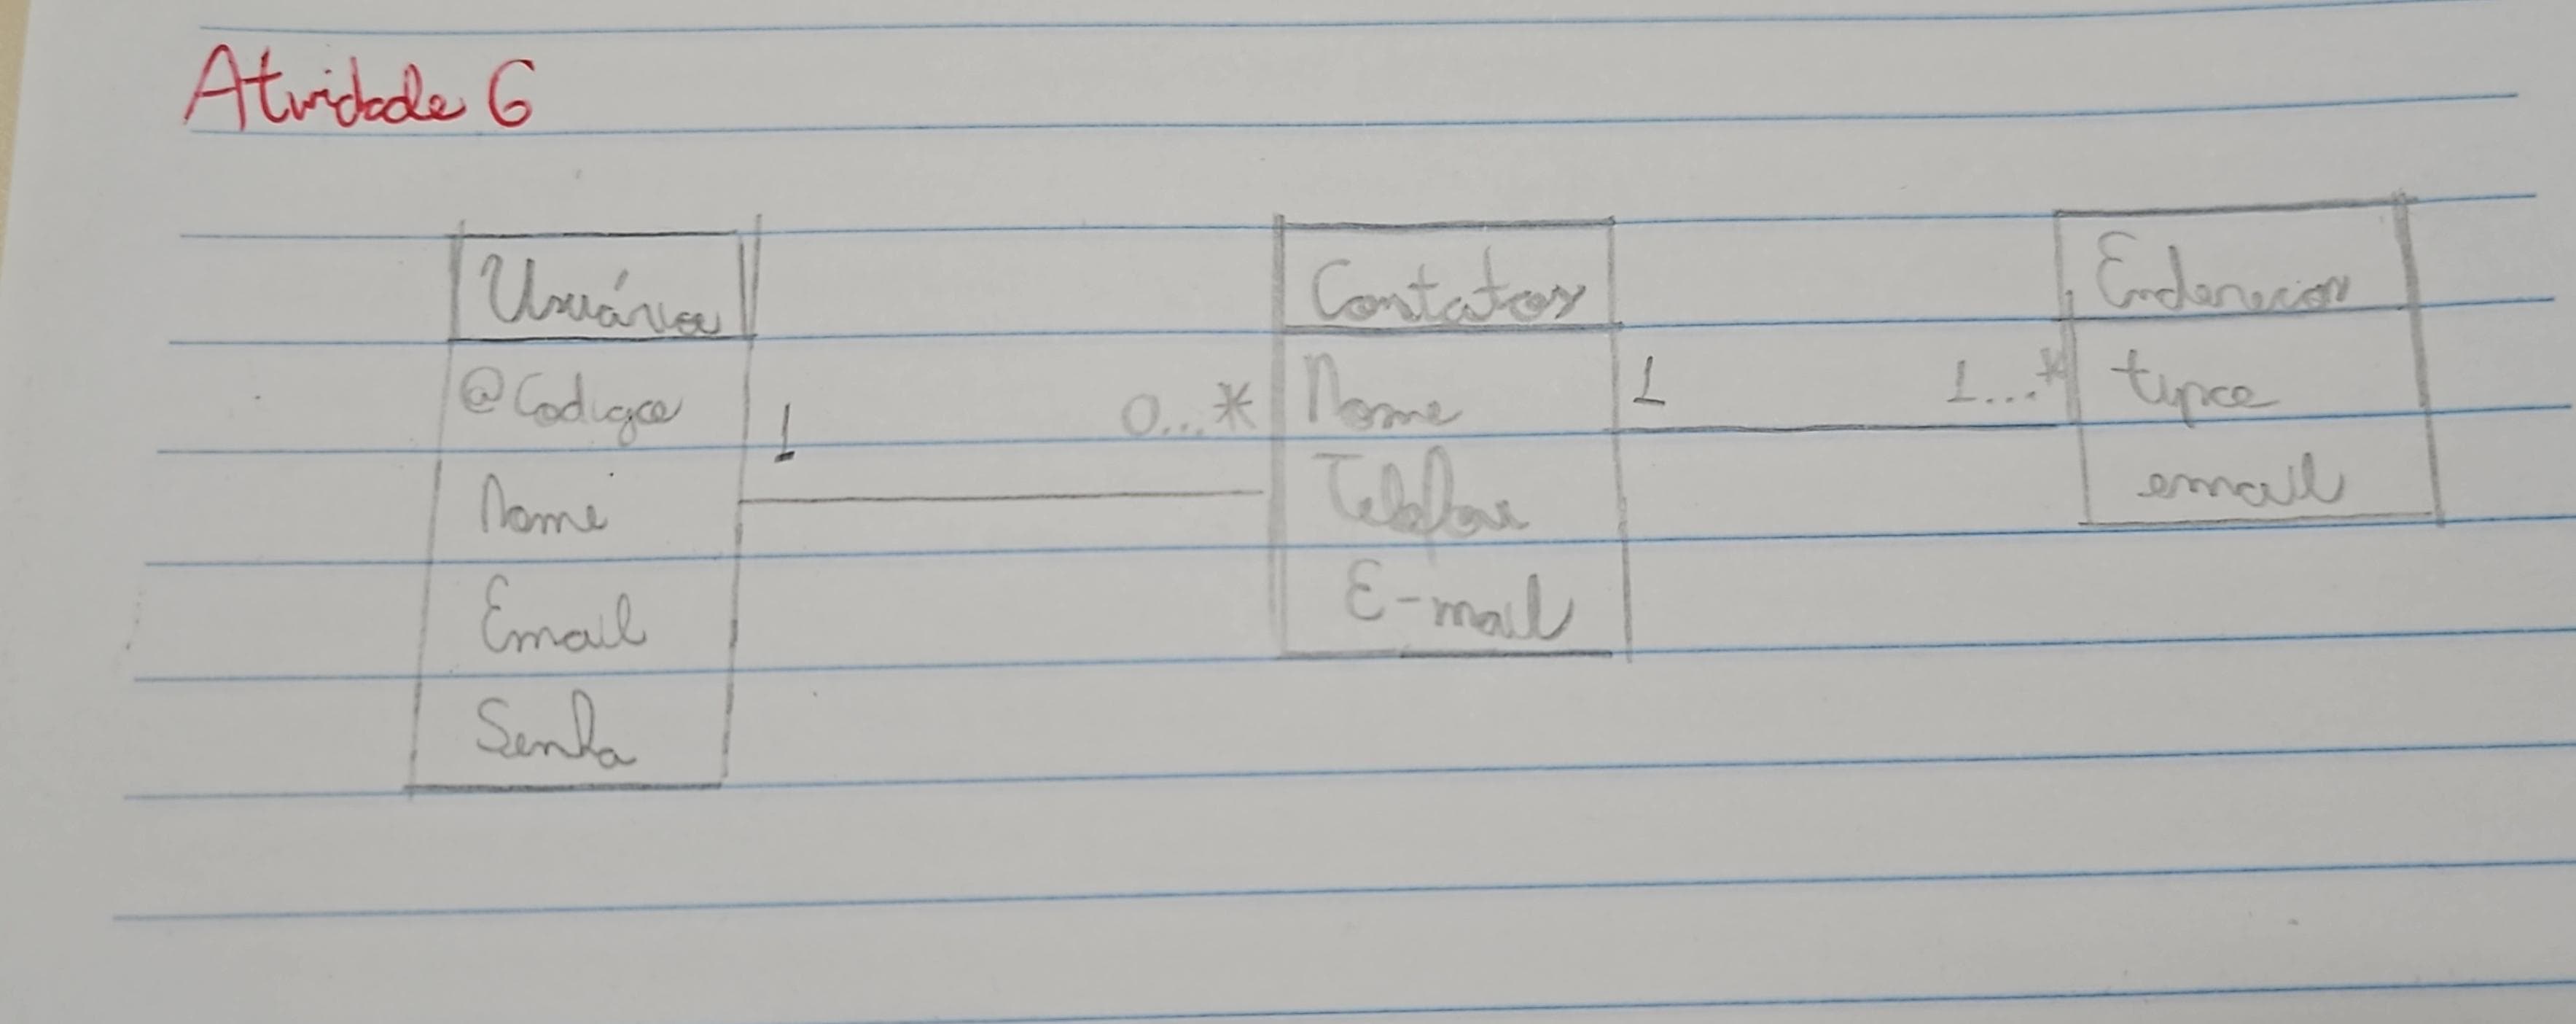 Atividade 6
Usuário
@Codigo
Nome
Email
Senha
1 0...*
Contatos
Nome
Telefone
E-mail
1 1...*
Enderecos
tipo
email